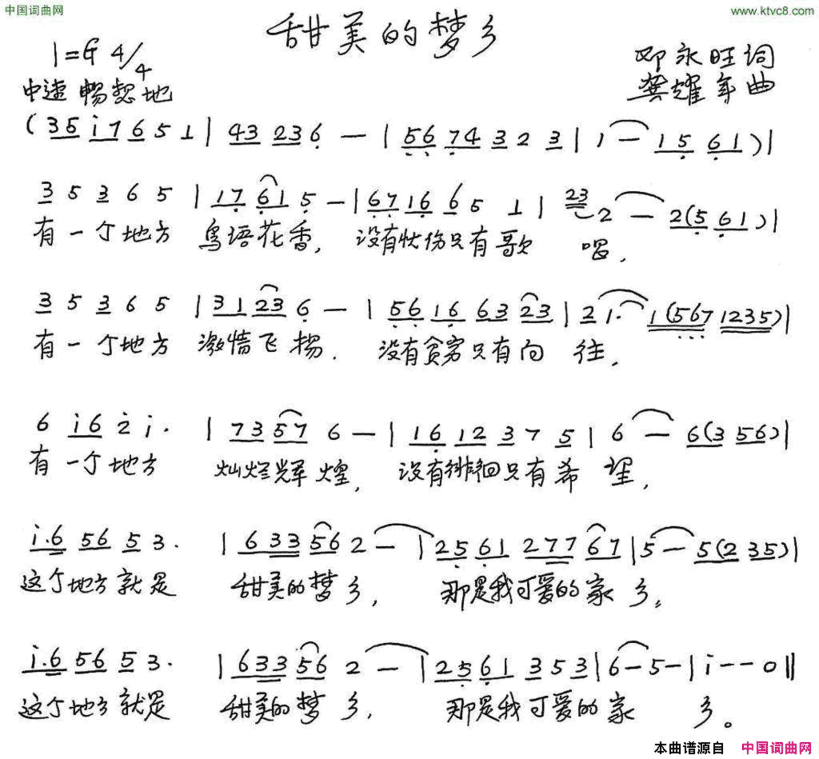 中国词曲网
www.ktvc8.com
甜美的梦乡
1=G 4/4
邓永旺词
中速 畅想地
龚耀年曲
(35 i7 6 5 1 | 43 23 6 — | 56 74 3 2 3 | 1 — 15 61) |
3 5 3 6 5 | 17 61 5 — | 67 16 6 5 1 | 23 2 — 2(5 61) |
有一个地方 鸟语花香, 没有忧伤只有歌 唱,
3 5 3 6 5 | 31 23 6 — | 56 16 63 23 | 2 1. 1(567 1235) |
有一个地方 激情飞扬. 没有贫穷只有向 往,
6 i6 2 i. | 73 57 6 — | 16 12 3 7 5 | 6 — 6(3 56) |
有一个地方 灿烂辉煌, 没有徘徊只有希 望,
i.6 56 5 3. | 633 56 2 — | 25 61 277 67 | 5 — 5(2 35) |
这个地方就是 甜美的梦乡, 那是我可爱的家乡。
i.6 56 5 3. | 633 56 2 — | 25 61 3 5 3 | 6 — 5 — | i — — 0 ‖
这个地方就是 甜美的梦乡, 那是我可爱的家 乡。
本曲谱源自 中国词曲网